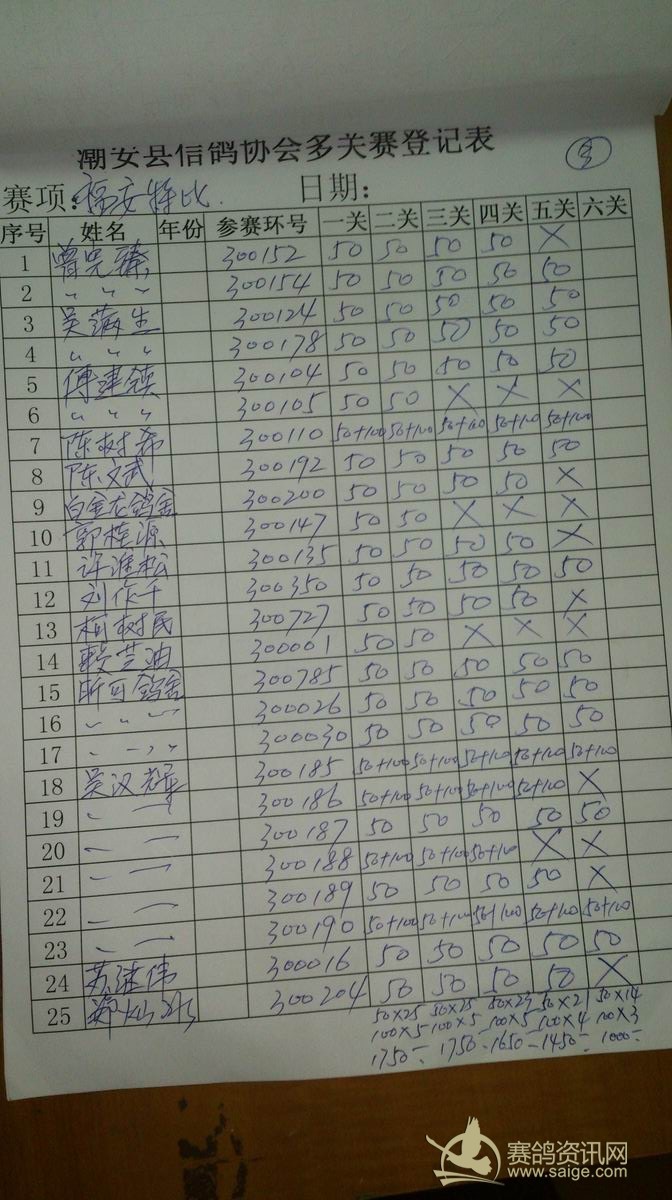 潮安县信鸽协会多关赛登记表
③
赛项: 福安特比. 日期:
序号 姓名 年份 参赛环号 一关 二关 三关 四关 五关 六关
1 曾宪臻 300152 50 50 50 50 ×
2 〃 〃 〃 300154 50 50 50 50 50
3 吴满生 300124 50 50 50 50 50
4 〃 〃 〃 300178 50 50 50 50 50
5 傅建领 300104 50 50 50 50 50
6 〃 〃 〃 300105 50 50 × × ×
7 陈树希 300110 50+100 50+100 50+100 50+100 50+100
8 陈文武 300192 50 50 50 50 50
9 白金龙鸽舍 300200 50 50 50 50 ×
10 郭桂源 300147 50 50 × × ×
11 许淮松 300135 50 50 50 50 ×
12 刘作千 300350 50 50 50 50 50
13 柯树民 300727 50 50 50 50 ×
14 芝油 300001 50 50 × × ×
15 昕可鸽舍 300785 50 50 50 50 50
16 〃 〃 〃 300026 50 50 50 50 50
17 〃 〃 〃 300030 50 50 50 50 50
18 吴汉 300185 50+100 50+100 50+100 50+100 50+100
19 300186 50+100 50+100 50+100 50+100 ×
20 300187 50 50 50 50 50
21 300188 50+100 50+100 50+100 × ×
22 300189 50 50 50 50 ×
23 300190 50+100 50+100 50+100 50+100 50+100
24 苏继伟 300016 50 50 50 50 50
25 郑灿 300204 50 50 50 50 ×
50×25 50×25 50×23 50×21 50×14
100×5 100×5 100×5 100×4 100×3
1750- 1750- 1650- 1450- 1000-
赛鸽资讯网
www.saige.com